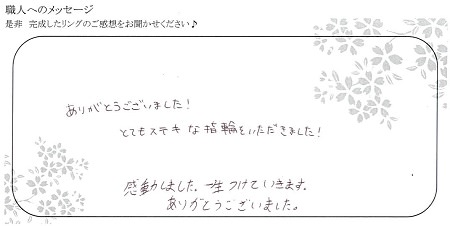 職人へのメッセージ
是非 完成したリングのご感想をお聞かせください♪
ありがとうございました!
とてもステキな指輪をいただきました!
感動しました。一生つけていきます。
ありがとうございました。